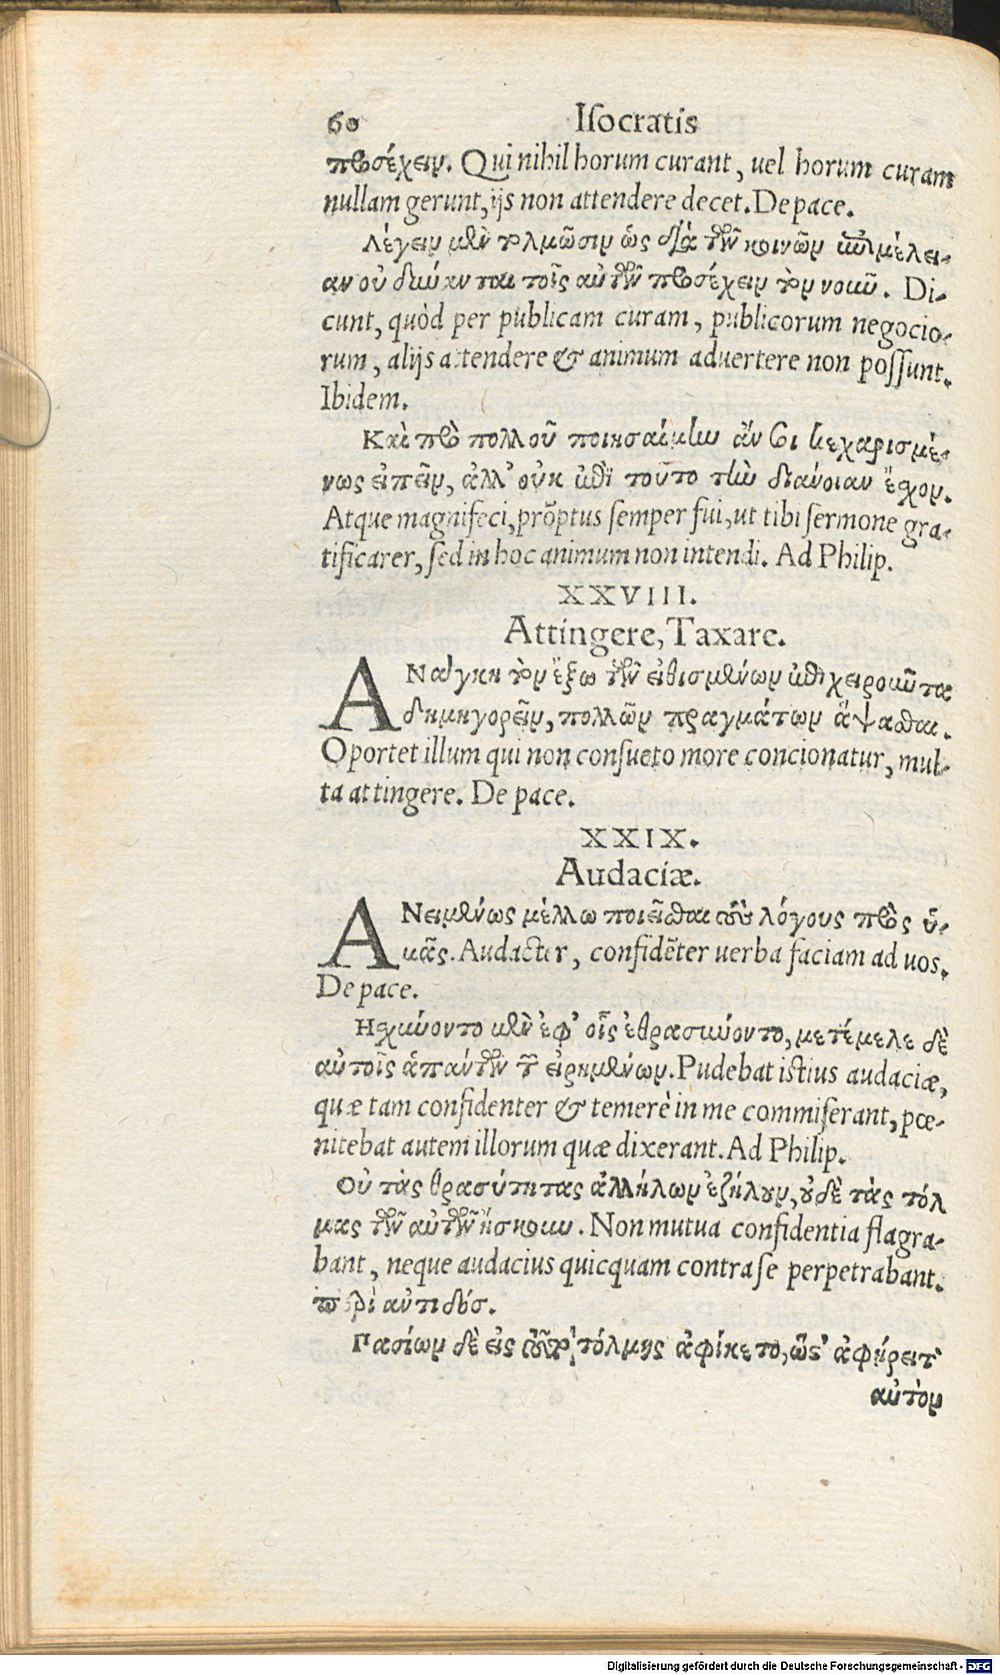 60 Iſocratis
προσέχειν. Qui nihil horum curant, uel horum curam
nullam gerunt, ijs non attendere decet. De pace.
Λέγειν μὲν τολμῶσιν ὡς διὰ τὴν κοινῶν ἐπιμέλει-
αν οὐ δύνανται τοῖς αὐτῶν προσέχειν τὸν νοῦν. Di-
cunt, quòd per publicam curam, publicorum negocio-
rum, alijs attendere & animum aduertere non poſſunt.
Ibidem.
Καὶ πρὸ πολλοῦ ποιησαίμην ἄν σοι κεχαρισμέ-
νως εἰπεῖν, ἀλλ' οὐκ ἐπὶ τοῦτο τὴν διάνοιαν ἔσχον.
Atque magnifeci, prōptus ſemper fui, ut tibi ſermone gra-
tificarer, ſed in hoc animum non intendi. Ad Philip.
XXVIII.
Attingere, Taxare.
ΑΝάγκη τὸν ἔξω τῶν εἰθισμένων ἐπιχειροῦντα
δημηγορεῖν, πολλῶν πραγμάτων ἅψασθαι.
Oportet illum qui non conſueto more concionatur, mul-
ta attingere. De pace.
XXIX.
Audaciæ.
ΑΝειμένως μέλλω ποιεῖσθαι τοὺς λόγους πρὸς ὑ-
μᾶς. Audacter, confidēter uerba faciam ad uos.
De pace.
Ηχύνοντο μὲν ἐφ' οἷς ἐθρασύνοντο, μετέμελε δὲ
αὐτοῖς ἁπάντων τῶν εἰρημένων. Pudebat istius audaciæ,
quæ tam confidenter & temerè in me commiſerant, pœ-
nitebat autem illorum quæ dixerant. Ad Philip.
Οὐ τὰς θρασύτητας ἀλλήλων ἐζήλουν, οὐδὲ τὰς τόλ
μας τὴν αὐτῶν ἤσκουν. Non mutua confidentia flagra-
bant, neque audacius quicquam contra ſe perpetrabant.
περὶ αὐτιδόσ.
Πασίων δὲ εἰς τοῦτο τόλμης ἀφίκετο, ὥστ' ἀφῄρειτ
αὐτὸν
Digitalisierung gefördert durch die Deutsche Forschungsgemeinschaft - DFG